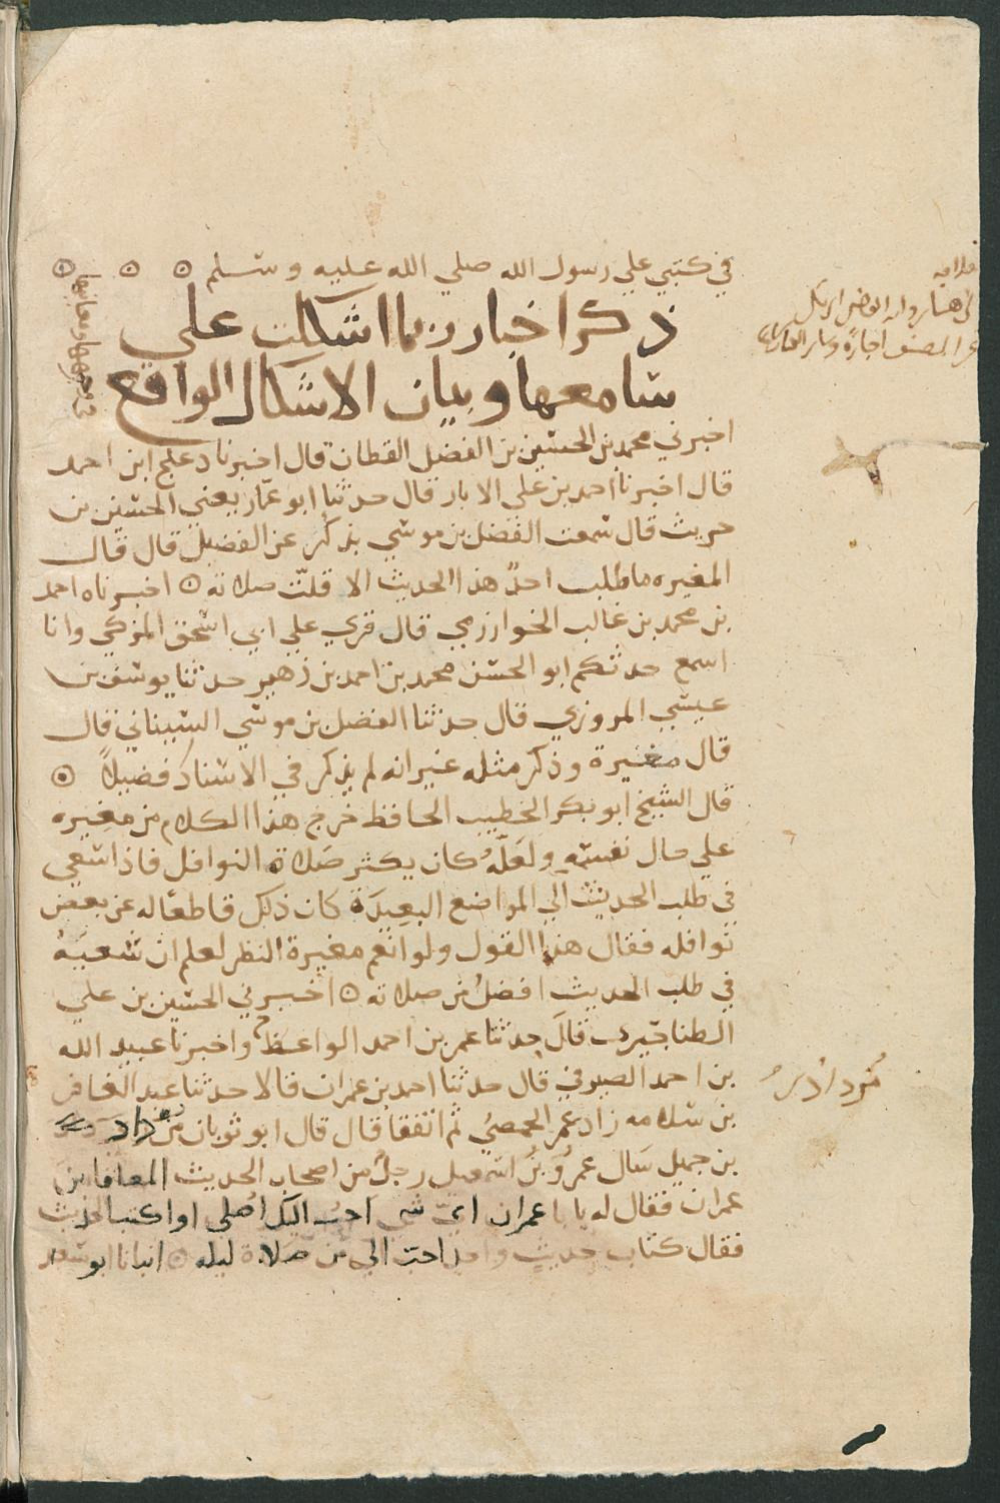 في كتبي علي رسول الله صلي الله عليه وسلم ۞ ۞ ۞
ذكر اخبار ربما اشكلت علي
سامعها وبيان الاشكال الواقع
في وجوهها ومعانيها
اخبرني محمد بن الحسين بن الفضل القطان قال اخبرنا دعلج ابن احمد
قال اخبرنا احمد بن علي الابار قال حدثنا ابو عمار يعني الحسين بن
حريث قال سمعت الفضل بن موسي يذكر عن الفضيل قال قال
المغيره ما طلب احدٌ هذا الحديث الا قلّت صلاته ۞ اخبرناه احمد
بن محمد بن غالب الخوارزمي قال قري علي ابي اسحق المزكي وانا
اسمع حدثكم ابو الحسن محمد بن احمد بن زهير حدثنا يوسف بن
عيسي المروزي قال حدثنا الفضل بن موسي السيناني قال
قال مغيرة وذكر مثله غير انه لم يذكر في الاسناد فضيلاً ۞
قال الشيخ ابو بكر الخطيب الحافظ خرج هذا الكلام من مغيره
علي حال نفسه ولعَلّهُ كان يكثر صَلاة النوافل فاذا سعي
في طلب الحديث الي المواضع البعيدَة كان ذلك قاطعًا له عن بعض
نوافله فقال هذا القول ولو انعم مغيرة النظر لعلم ان سَعيَهُ
في طلب الحديث افضلُ من صلاته ۞ اخبرني الحسين بن علي
الطناجيري قالَ حدثنا عمر بن احمد الواعظ ح واخبرنا عبيد الله
بن احمد الصيرفي قال حدثنا احمد بن عمران قالا حدثنا عبد الغافر
بن سلامه زاد عمر الحمصيُ ثم اتفقا قال قال ابو ثوبان
بن جميل سَال عمرُو بنُ اسمعيل رجلٌ من اصحاب الحديث المعافا بن
عمران فقال له يا ابا عمران ايّ شي احبُ اليك اُصلي او اكتب الحديث
فقال كتاب حديثٍ واحد احبّ الي من صلاة ليله ۞ انبانا ابو سعد